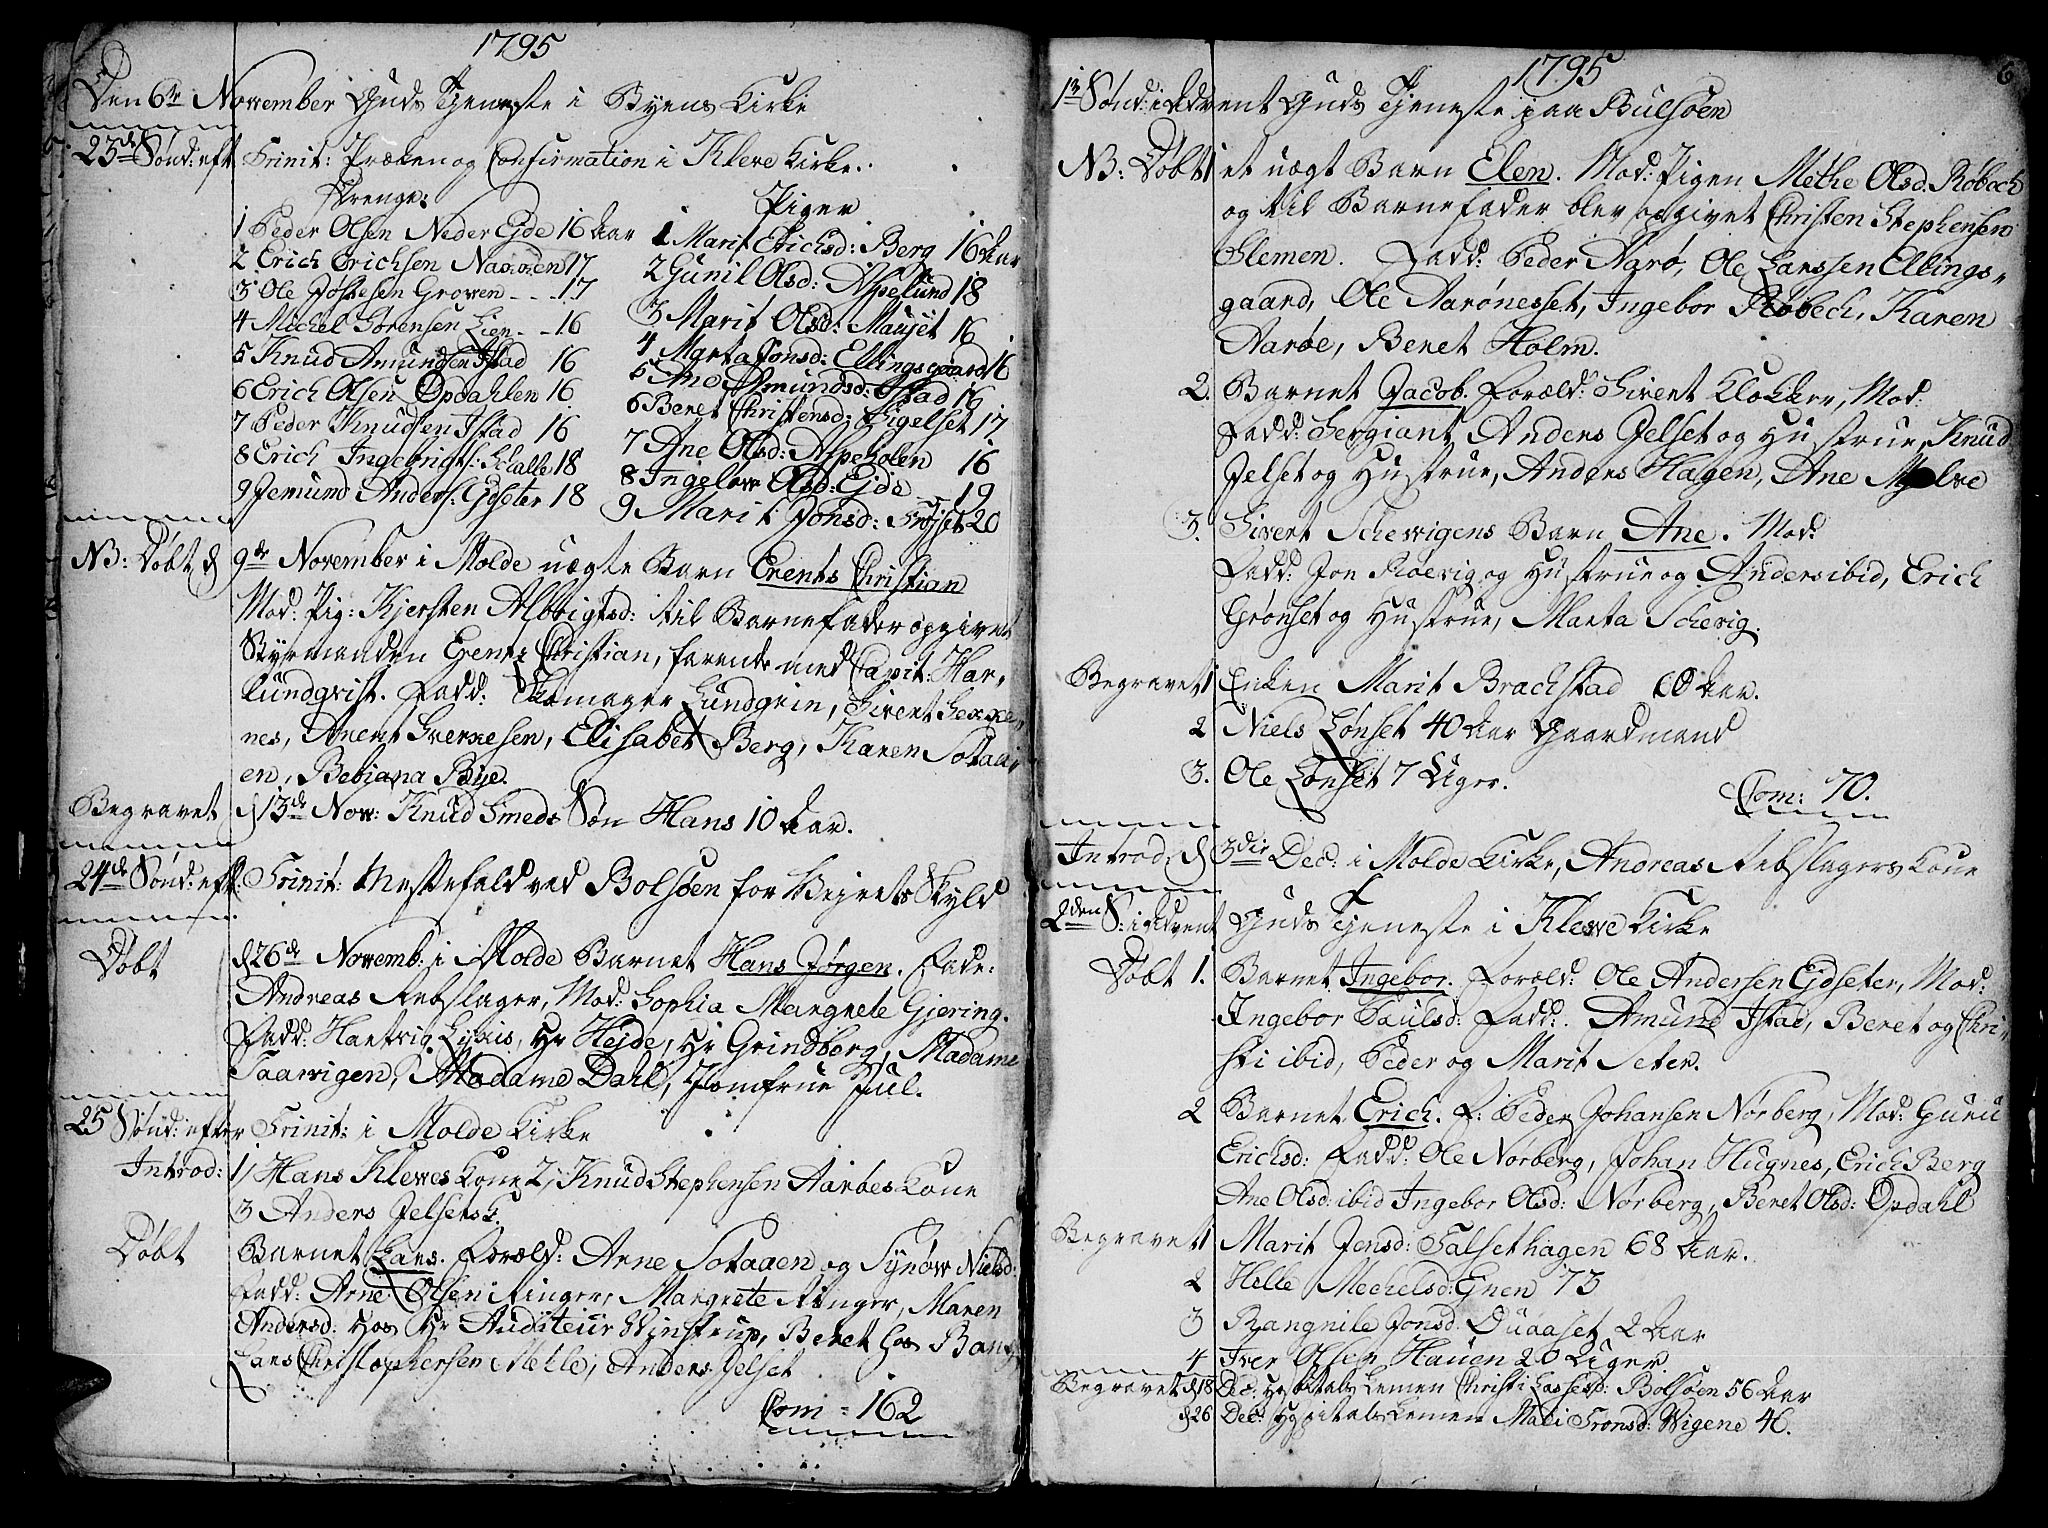 1795
Den 6te November Guds Tjeneste i Byens Kirke
23de Sønd: eft Trinit: Præken og Confirmation i Kleve Kirke.
Drenge:
1 Peder Olsen Neder Eide 16 Aar
2 Erich Erichsen 17
3 Ole Jostesen Groven 17
4 Michel Sørensen Lien 16
5 Knud Amundsen Istad 16
6 Erich Olsen Opdahlen 16
7 Peder Knudsen Istad 16
8 Erich Ingebrigts: Schalle 18
9 Jemund Anders: Eidseter 18
Piger
1 Marit Erichsd: Berg 16 Aar
2 Gunil Olsd: Aspelund 18
3 Marit Olsd: Mauset 16
4 Marta Jonsd: Ellingsgaard 16
5 Ane Amundsd: Istad 16
6 Beret Christensd: Eigelset 17
7 Ane Olsd: Aspeholen 16
8 Ingelow Olsd: Ejde 19
9 Marit Jonsd: Frøjset 20
NB: Døbt d 9de November i Molde uægte Barn Erents Christian
Mod: Pig: Kjersten Albrigtsd: til Barnefader opgivet
Styrmanden Christian, farende med Capit: Har,
Lundqvist. Fadd: Skomager Lundgrin, Sivert
nes, Anent Sverkesen, Elisabet Berg, Karen Sotaa,
en, Bebiana Bye.
Begravet d 13de Nov: Knud Smeds Søn Hans 10 Aar.
24de Sønd: eft. Trinit: Messefald ved Bolsøen for Vejrets Skyld
Døbt d 26de Novemb: i Molde Barnet Hans Jørgen. Fade:
Andreas Rebslager, Mod: Sophia Margrete Gjering.
Fadd: Hartvig Lykis, Hr Hejde, Hr Grindborg, Madame
Taarvigen, Madame Dahl, Jomfrue Juul.
25 Sønd: efter Trinit: i Molde Kirke
Introd: 1/ Hans Kleves Kone 2, Knud Stephensen Aarøes Kone
3 Anders Jelsets K.
Døbt Barnet Lars. Foræld: Arne Sotaaen og Synøw Nielsd:
Fadd: Arne Olsen Ringer, Margrete Ringer, Maren
Andersd: hos Hr Auditeur Winstrup, Beret hos Bang,
Lars Christophersen Mekle, Anders Jelset
Com = 162
1795
6
1ste Sønd: i Advent Guds Tjeneste paa Bulsøen
NB: Døbt 1 et uægt Barn Elen. Mod: Pigen Methe Olsd. Røbech
og til Barnefader blev opgivet Christen Stephensen
Slemen. Fadd: Peder Aarø, Ole Larssen Ellings-
gaard, Ole Aarønesset, Ingebor Røbech, Karen
Aarøe, Beret Holm.
2. Barnet Jacob. Foræld: Sivert Klokker, Mod:
Fadd: Sergiant Anders Jelset og Hustrue, Knud
Jelset og Hustrue, Anders Hagen, Ane Mjelve
3. Sivert Schevigens Barn Ane. Mod:
Fadd: Jon Røevig og Hustrue og Anders ibid, Erich
Grønset og Hustrue, Marta Schevig.
Begravet 1 Enken Marit Brachstad 60 Aar.
2 Niels Lønset 40 Aar Gaardmand
3. Ole Lønset 7 Uger.
Com: 70.
Introd. d 3die Dec: i Molde Kirke, Andreas Rebslagers Kone
2den S: i Advent Guds Tjeneste i Kleve Kirke
Døbt 1. Barnet Ingebor. Foræld: Ole Andersen Eidseter, Mod:
Ingebor Paulsd: Fadd: Amund Istad, Beret og Chri,
sti ibid, Peder og Marit Seter.
2 Barnet Erich. F: Peder Johansen Nørberg, Mod: Guru
Erichsd: Fadd: Ole Nørberg, Johan Hugnes, Erich Berg
Ane Olsd: ibid Ingebor Olsd: Nørberg, Beret Olsd: Opdahl
Begravet 1 Marit Jensd: Talsethagen 68 Aar.
2 Helle Mechelsd: Enen 73
3 Rangnile Jonsd: Duaaset 2 Aar
4 Iver Olsen Hauen 20 Uger
Begravet d 18 Dec: Hospitals Lemen Christi Lassesd: Bolsøen 56 Aar
d 26 Dec: Hospitals Lemen Mari Tronsd: Wigene 46.